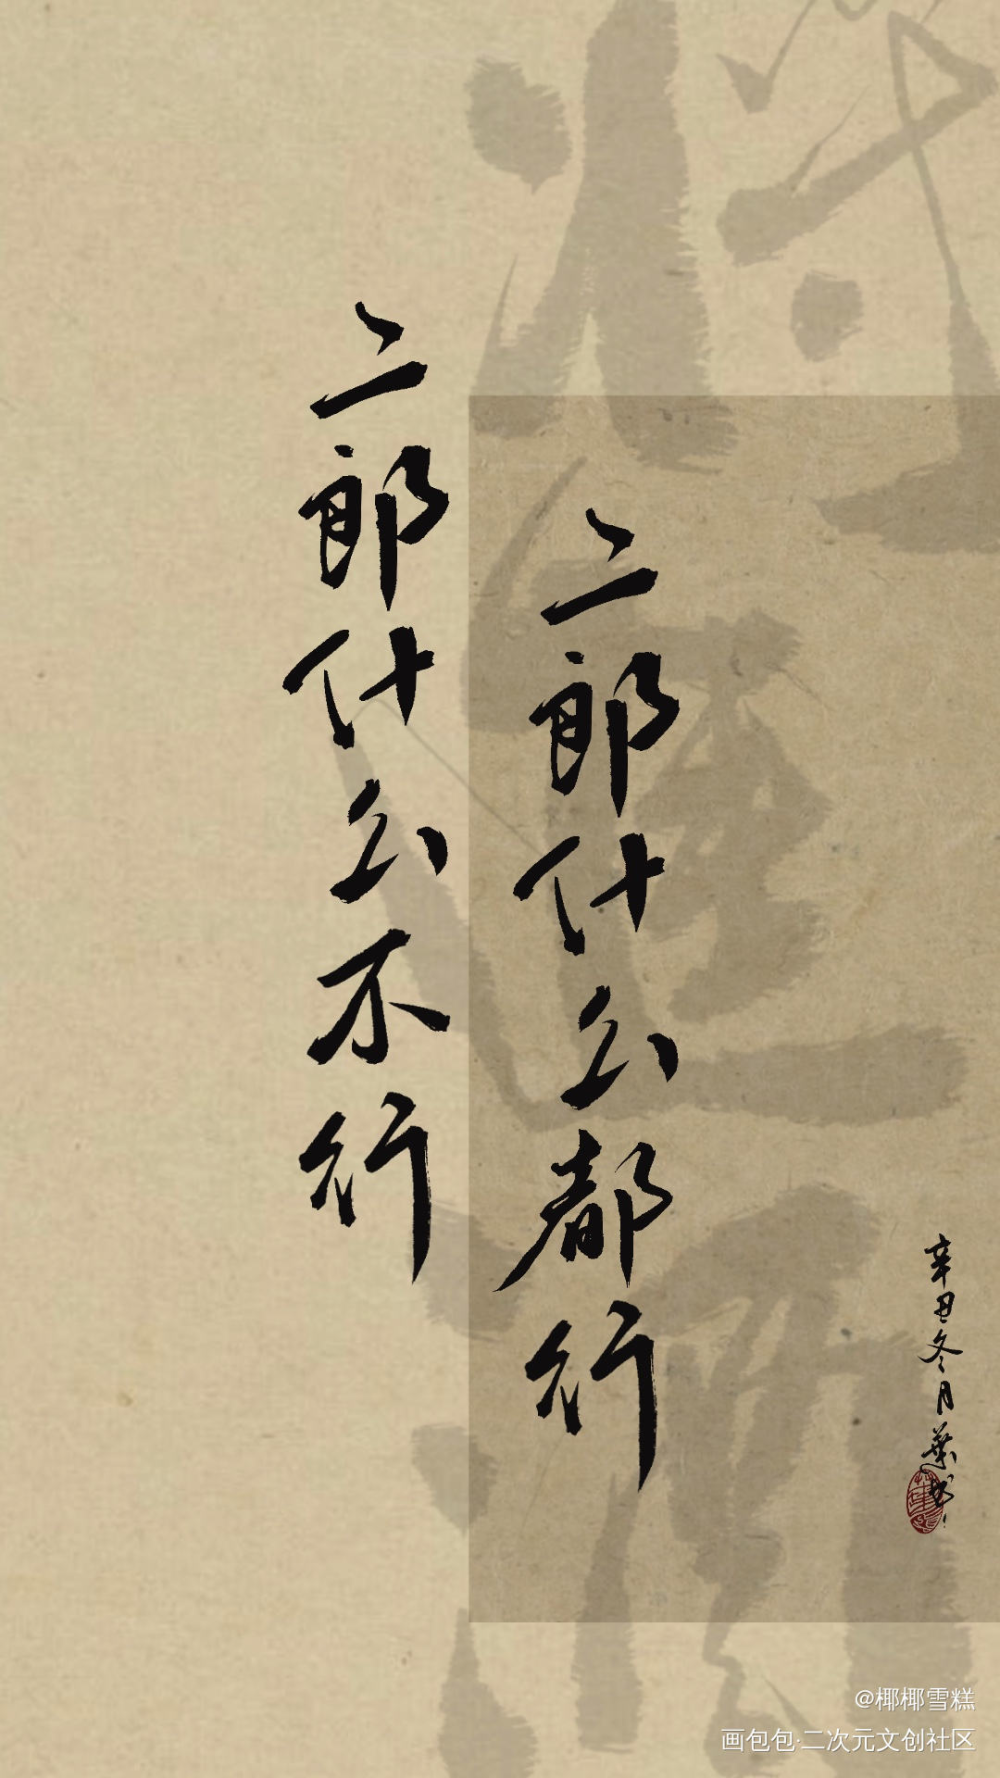 二郎什么都行
二郎什么不行
辛丑冬月
@椰椰雪糕
画包包·二次元文创社区